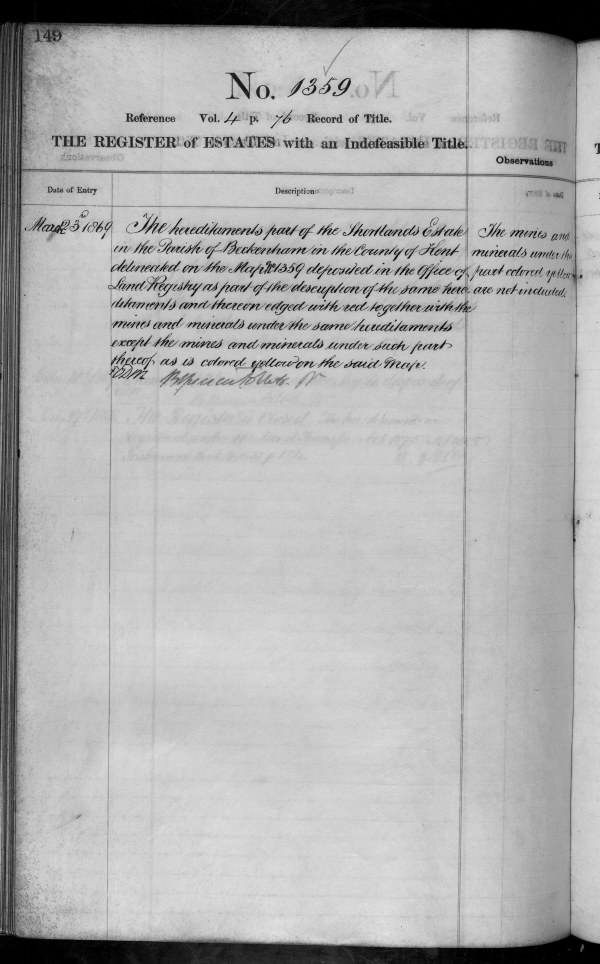 149
No. 1359
Reference Vol. 4 p. 76 Record of Title.
THE REGISTER of ESTATES with an Indefeasible Title.
Observations
Date of Entry
Description
March 23d 1869
The hereditaments part of the Shortlands Estate
in the Parish of Beckenham in the County of Kent
delineated on the Map No 1359 deposited in the Office of
Land Registry as part of the description of the same here
ditaments and thereon edged with red together with the
mines and minerals under the same hereditaments
except the mines and minerals under such part
thereof as is colored yellow on the said Map.
The mines and
minerals under the
part colored yellow
are not included.